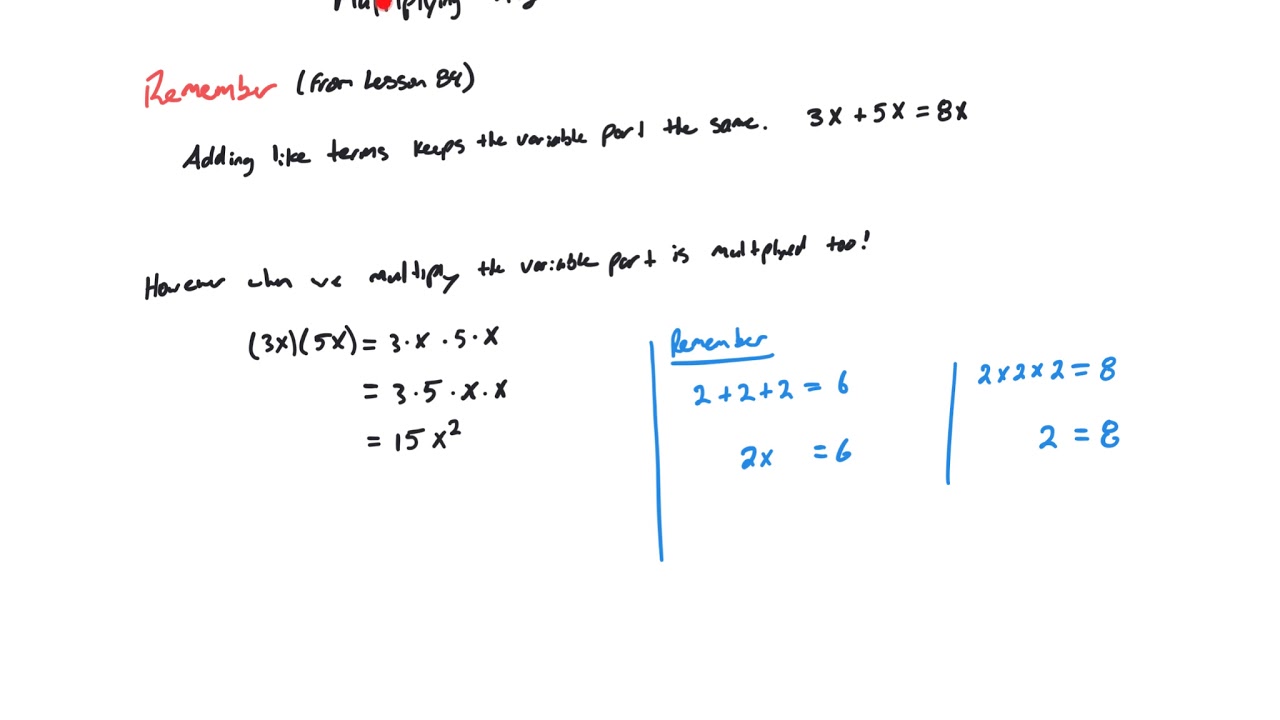 Multiplying
Remember (from Lesson 84)
Adding like terms keeps the variable part the same. 3x + 5x = 8x
However when we multiply the variable part is multplyed too!
(3x)(5x) = 3·x·5·x
= 3·5·x·x
= 15x²
Remember
2+2+2 = 6
2x = 6
2x2x2 = 8
2 = 8